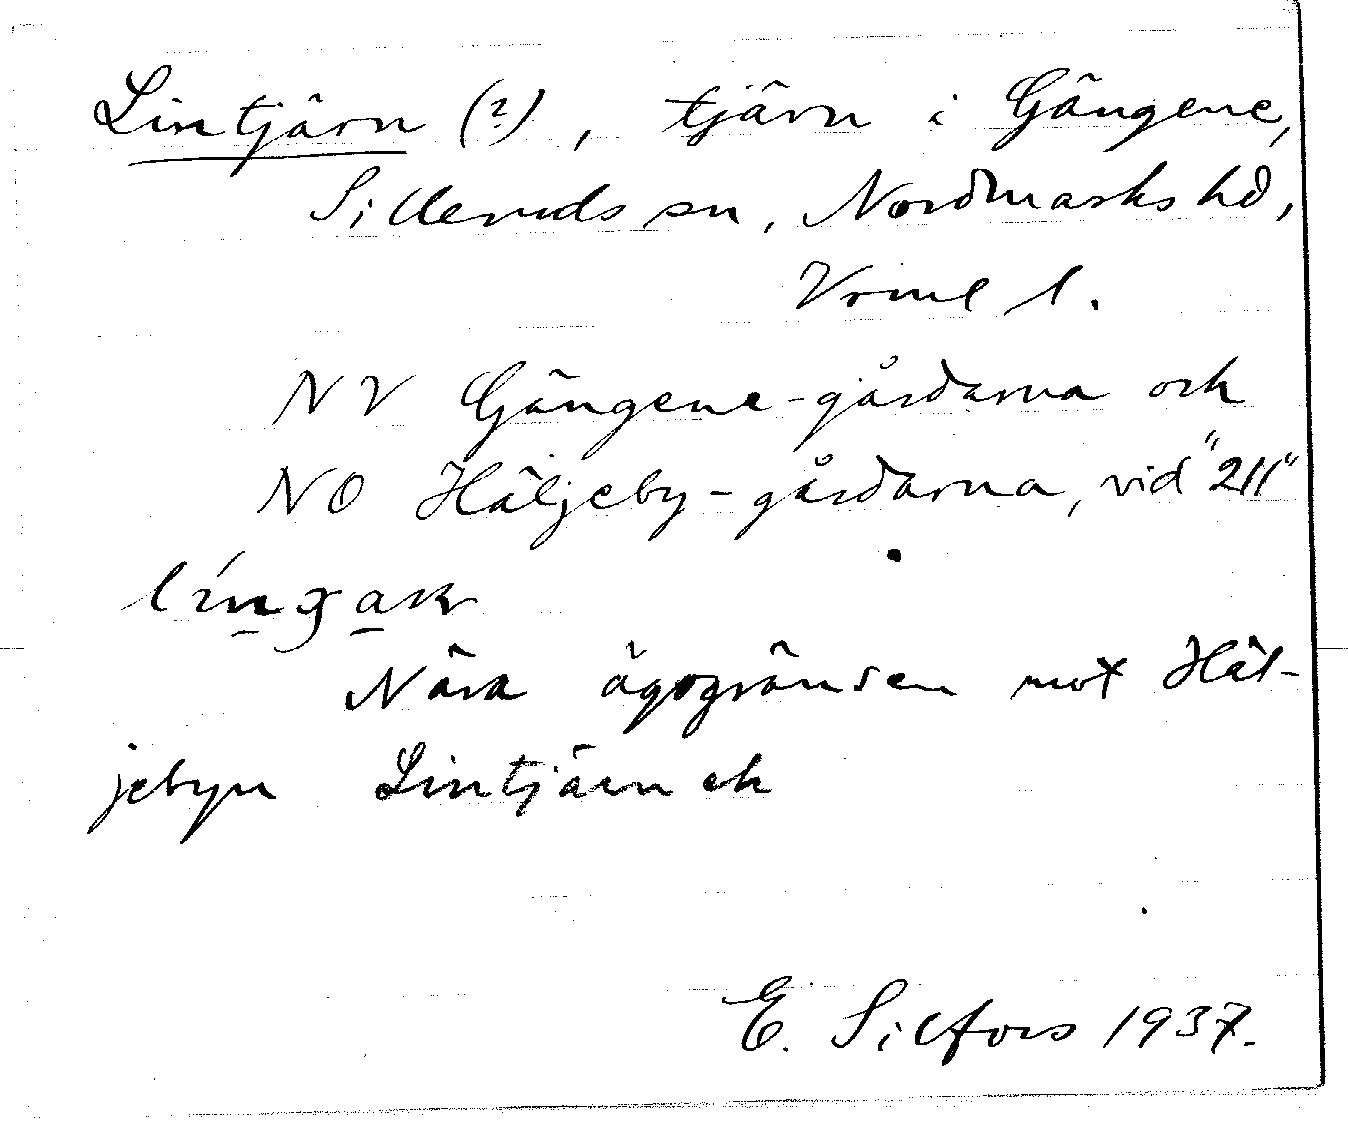 Lintjärn (?), tjärn i Gängene,
Silleruds sn, Nordmarks hd,
Vrml l.
NV Gängene-gårdarna och
NO Häljeby-gårdarna, vid "211"
Nära ägogränsen mot Häl-
jebyn Lintjärn ek
E. Silfors 1937.